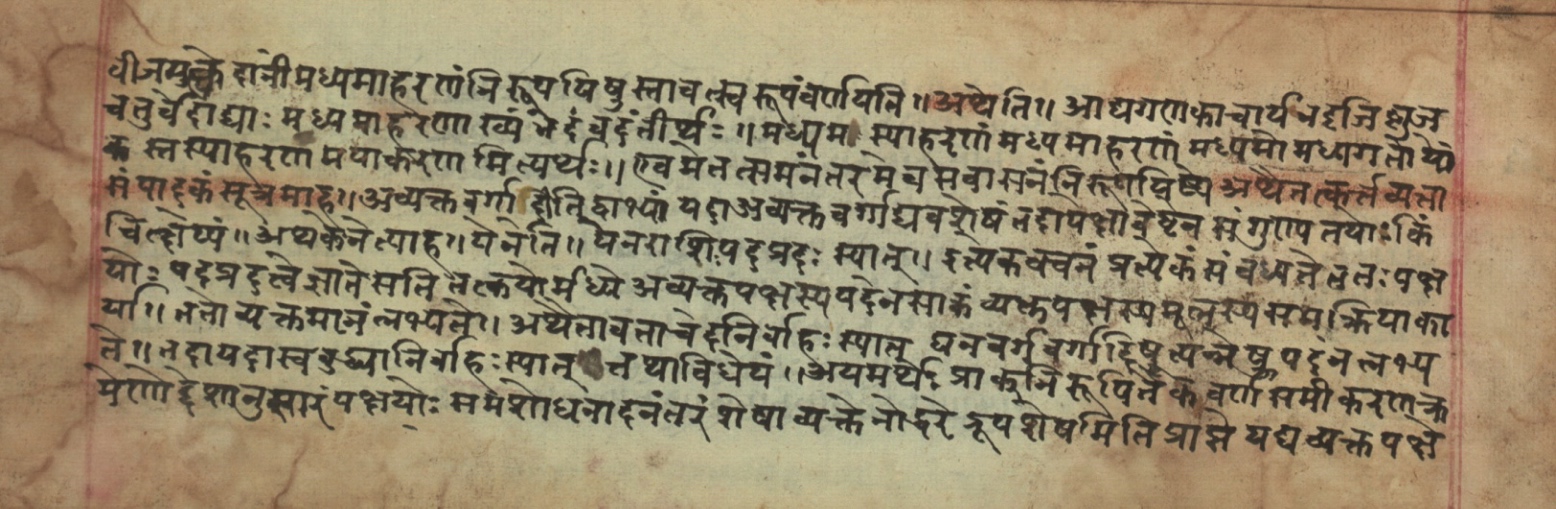 वीजमुक्त्वेदानीं मध्यमाहरणं निरूपयिषुस्तावत्स्वरूपं वर्णयति ॥ अथेति ॥ आद्यगणकाचार्य
चतुर्वेदाद्याः मध्यमाहरणाख्यं भेदं वदंतीत्यर्थः ॥ मध्यमस्याहरणं मध्यमाहरणं मध्यमो मध्यगतो यो
कस्तस्याहरणमपाकरणमित्यर्थः ॥ एवमेतत्समनंतरमेव सवासनं निरूपयिष्य अथैतत्कर्तव्यता
संपादकं सूत्रमाह ॥ अव्यक्तवर्गादीति द्वाभ्यां यदा अव्यक्तवर्गाद्यवशेषं तदा पक्षाविष्टेन संगुणे तयोः किं
चित्क्षेप्यं ॥ अथ केनेत्याह ॥ येनेति ॥ येन राशिः पदप्रदः स्यात् ॥ इत्येकवचनं प्रत्येकं संबध्यते ततः पक्ष
योः पदप्रदत्वे ज्ञाते सति तत्क्रियोर्मध्ये अव्यक्तपक्षस्य पदेन साकं व्यक्तपक्षस्य मूलस्य समक्रिया का
र्या ॥ ततो व्यक्तमानं लभ्यते ॥ अथैतावता चेदनिर्वाहः स्यात् घनवर्गवर्गादिषु त्यत्तेषु पदं न लभ्य
ते ॥ तदा यदा स्वबुद्ध्या निर्वाहः स्यात् तथा विधेयं ॥ अयमर्थः प्राक् निरूपितैकवर्णसमीकरणक्र
मेणोद्देशानुसारं पक्षयोः समशोधनादनंतरं शेषाव्यक्तेनोद्धरे द्रूपशेषमिति प्राप्ते यद्यव्यक्तपक्षे